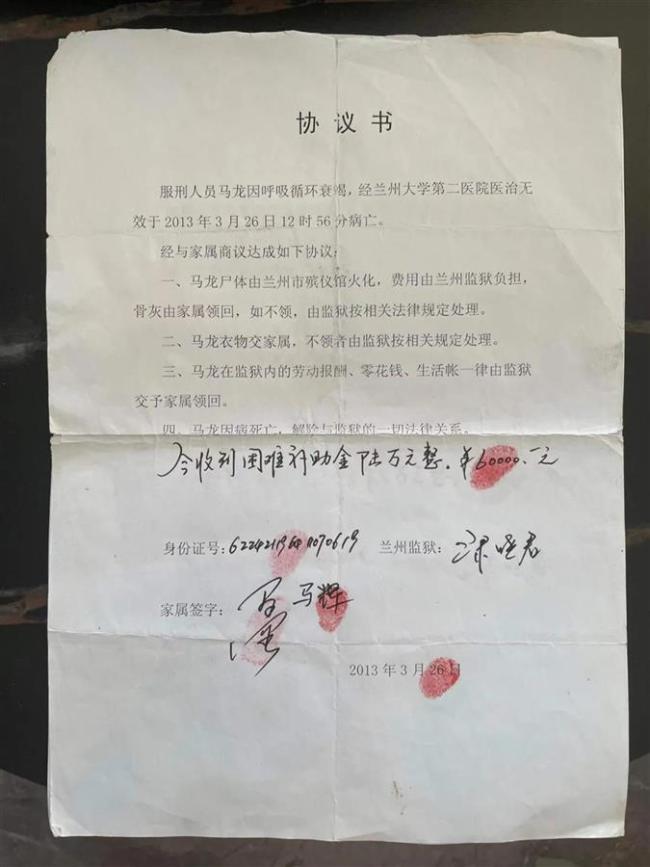 协议书
服刑人员马龙因呼吸循环衰竭，经兰州大学第二医院医治无
效于2013年3月26日12时56分病亡。
经与家属商议达成如下协议：
一、马龙尸体由兰州市殡仪馆火化，费用由兰州监狱负担，
骨灰由家属领回，如不领，由监狱按相关法律规定处理。
二、马龙衣物交家属，不领者由监狱按相关规定处理。
三、马龙在监狱内的劳动报酬、零花钱、生活帐一律由监狱
交予家属领回。
四、马龙因病死亡，解除与监狱的一切法律关系。
今收到困难补助金陆万元整。￥60000.-元
身份证号： 兰州监狱：
家属签字： 马辉
2013年3月26日